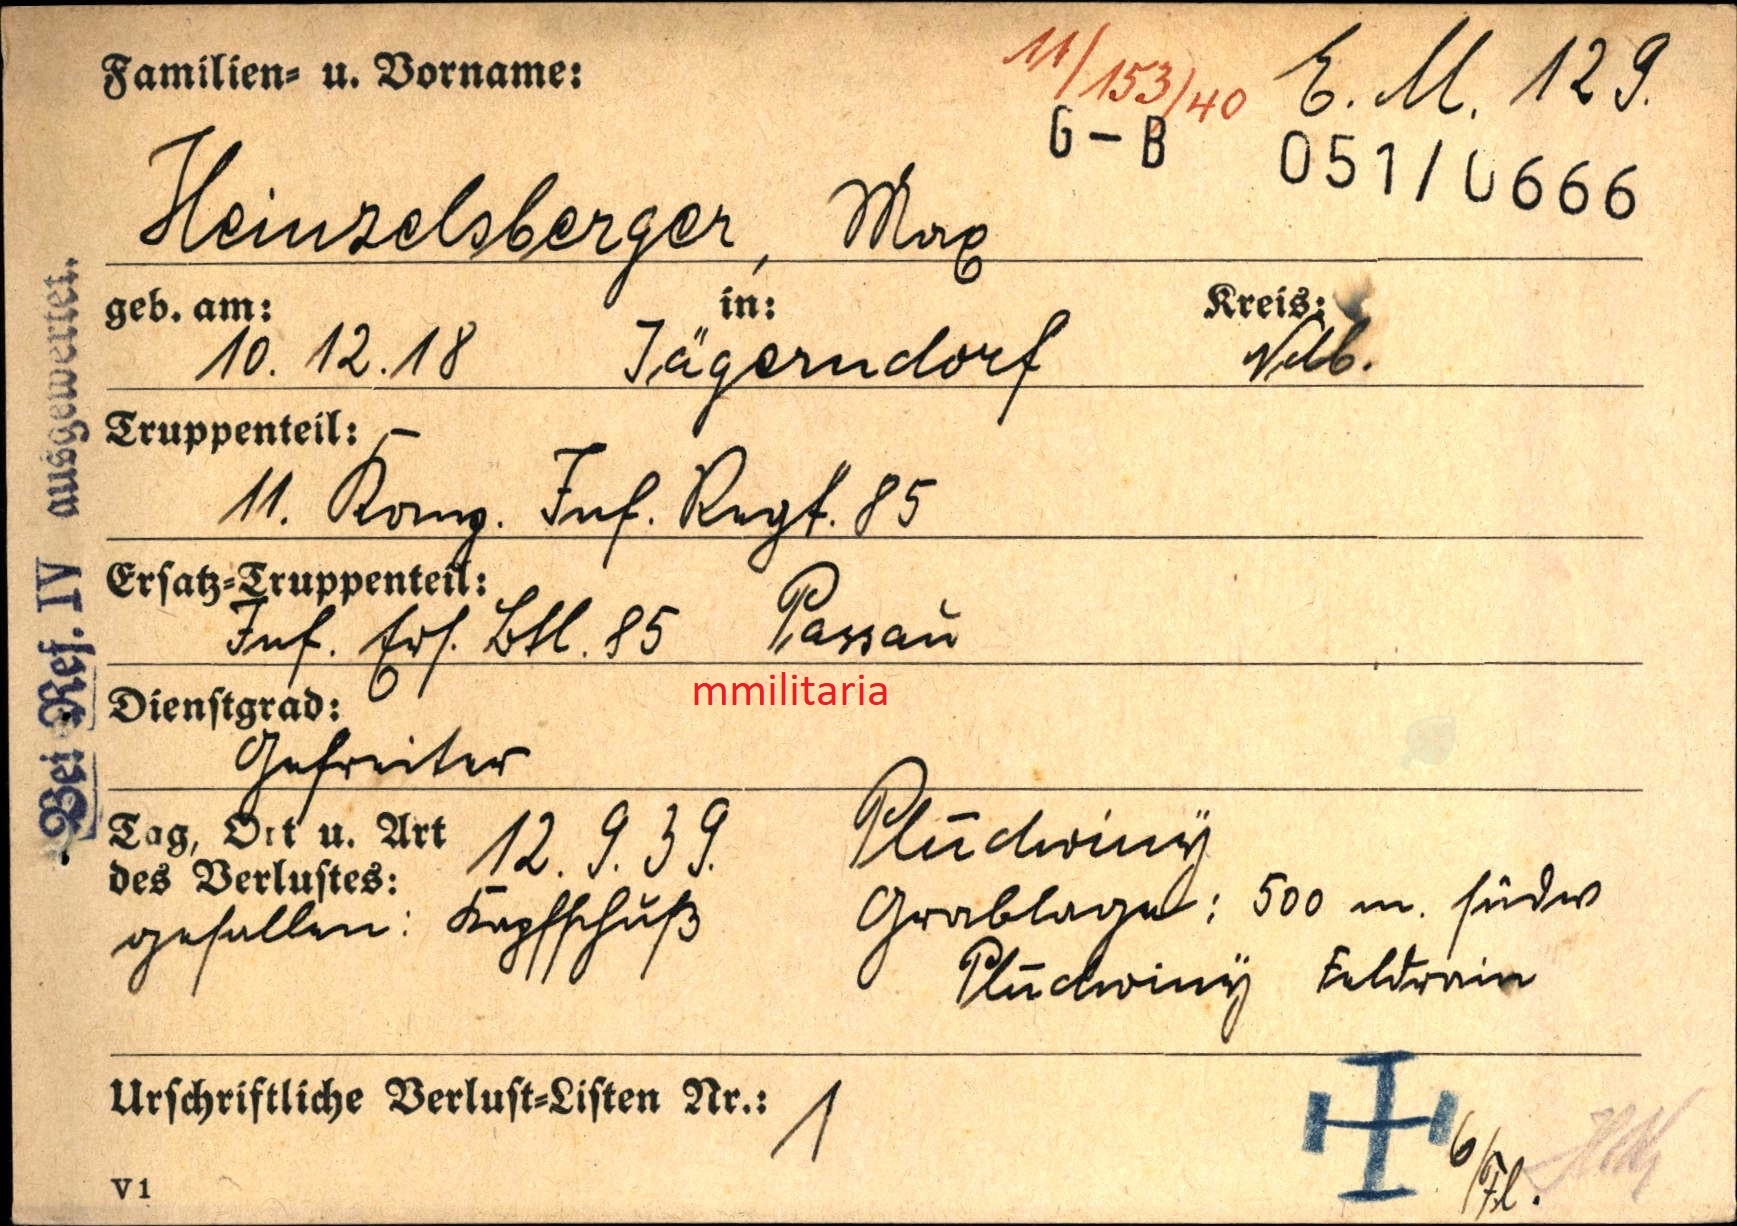 Familien- u. Vorname:
11/153/40
E. M. 129.
G-B
051/0666
Heinzelsberger, Max
geb. am:
in:
Kreis:
10. 12. 18
Jägerndorf
Truppenteil:
11. Komp. Inf. Regt. 85
Ersatz-Truppenteil:
Inf. Ers. Btl. 85 Passau
mmilitaria
Dienstgrad:
Gefreiter
Tag, Ort u. Art
des Verlustes:
12. 9. 39.
Pludwiny
gefallen: Kopfschuß
Grablage: 500 m. südw
Pludwiny Feldrain
Urschriftliche Verlust-Listen Nr.: 1
6/Fl.
V 1
Bei Ref. IV ausgewertet.